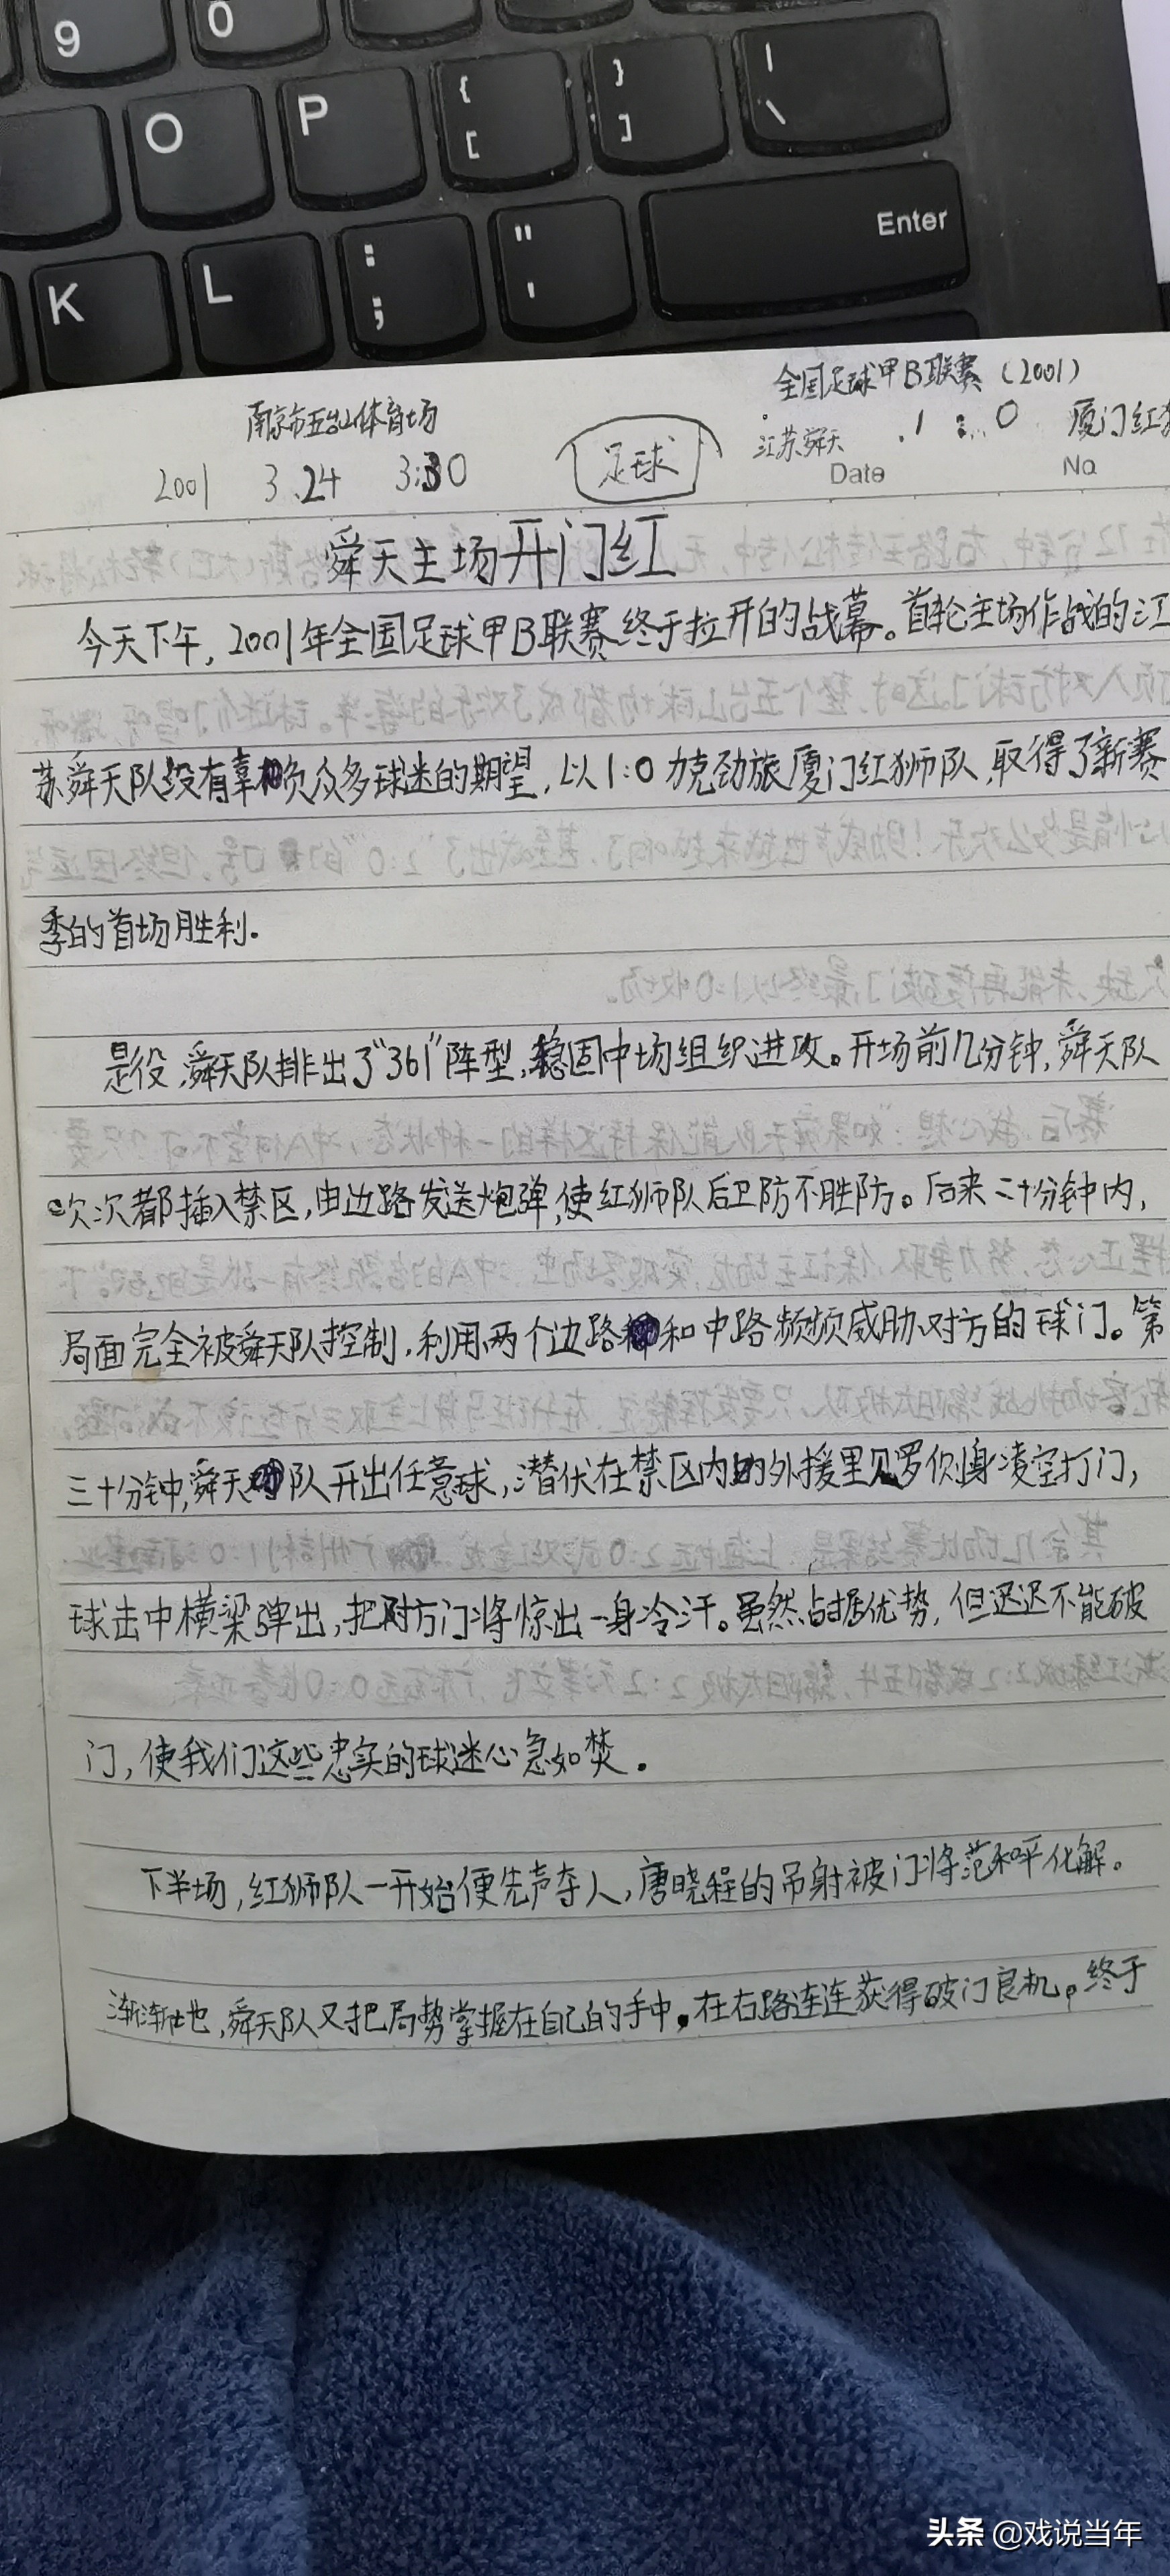 9 0
O P { [ } ] | \
K L : ; " ' Enter
全国足球甲B联赛（2001）
南京市五台山体育场
足球
江苏舜天 1:0 厦门红
2001 3.24 3:30
Date No
舜天主场开门红
今天下午，2001年全国足球甲B联赛终于拉开的战幕。首轮主场作战的江
苏舜天队没有辜负众多球迷的期望，以1:0力克劲旅厦门红狮队，取得了新赛
季的首场胜利.
是役，舜天队排出了"361"阵型，稳固中场组织进攻。开场前几分钟，舜天队
次次都插入禁区，由边路发送炮弹，使红狮队后卫防不胜防。后来二十分钟内，
局面完全被舜天队控制，利用两个边路和中路频频威胁对方的球门。第
三十分钟，舜天队开出任意球，潜伏在禁区内的外援里贝罗侧身凌空打门，
球击中横梁弹出，把对方门将惊出一身冷汗。虽然占据优势，但迟迟不能破
门，使我们这些忠实的球迷心急如焚.
下半场，红狮队一开始便先声夺人，唐晓程的吊射被门将范和平化解。
渐渐地，舜天队又把局势掌握在自己的手中。在右路连连获得破门良机。终于
头条 @戏说当年